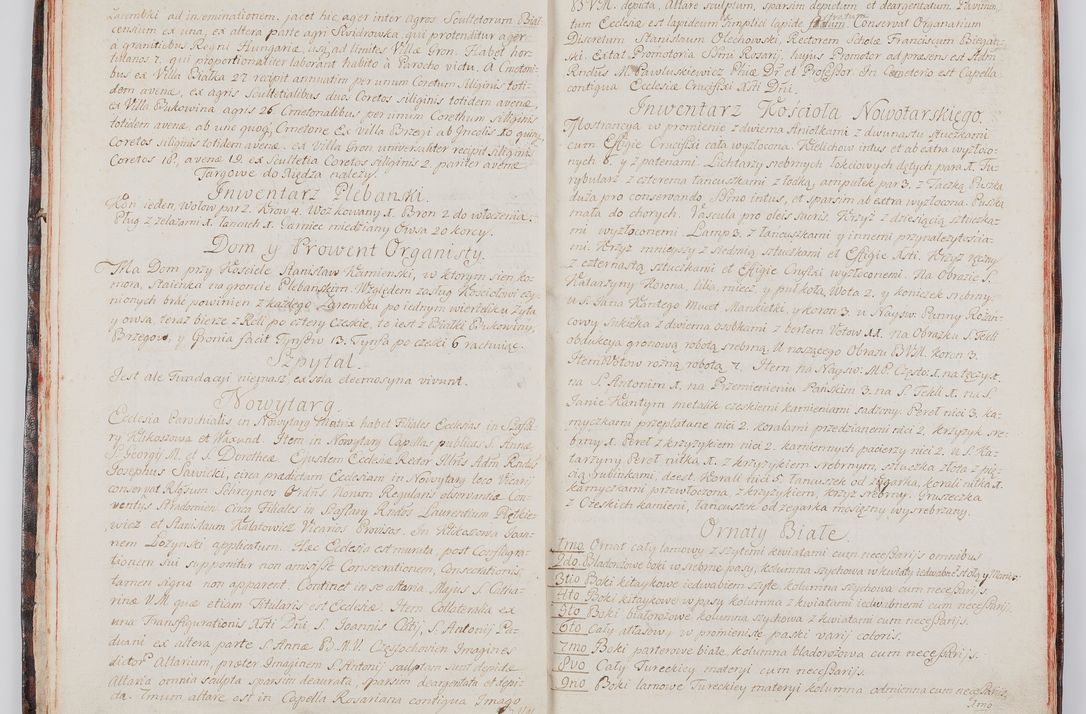 Zarembki ad inseminationem. jacet hic ager inter agros Scultetorum Biał-
censium ex una, ex altera parte agri Swidrowka, qui protenditur ager
a granitiebus Regni Hungariæ, usq. ad limites Villæ Gron. Habet hor-
tulanos 7. qui proportionaliter laborant habito à Parocho victu. A Cmetoni-
bus ex Villa Białka 27 recipit annuatim per unum Coretum siliginis toti-
dem avenæ, ex agris Scultetialibus duos Coretos siliginis totidem avenæ,
ex Villa Bukowina agris 26. Cmetonalibus per unum Corethum siliginis
totidem avenæ. ab uno quoq. Cmetone Ex Villa Brzegi ab Incolis 10 quinq.
Coretos siliginis totidem avenæ. ex Villa Gron universaliter recipit siliginis
Coretos 18, avenæ 19. ex Scultetia Coretos siliginis 2. pariter avenæ.
Targowe do Xiędza należy.
Inwentarz Plebanski.
Kon ieden, Wołow par 2. Krow 4. Woz kowany 1. Bron 2 do włoczenia;
Pług z żelazami 1. łancuch 1. Garniec miedziany Owsa 20 korcy.
Dom y Prowent Organisty.
Ma Dom przy Kościele Stanisław Kamienski, w ktorym sien ko-
mora, Staienka na groncie Plebanskim. Względem zasług Kościołowi czy-
nionych brać powinien z każdego Zarembku po iednym wierteliku Zyta
y owsa, teraz bierze z Roli po cztery Czeskie, to iest z Białki Bukowiny,
Brzegow, y Gronia facit Tynfow 13. Tynfa po czeski 6 rachuiąc.
Szpytal.
Jest ale Fundacyi niemasz ex sola eleemosyna vivunt.
Nowytarg.
Ecclesia Parochialis in Nowytarg Matrix habet Filiales Ecclesias in Szafla-
ry Klikoszowa et Waxmd. Item in Nowytarg Capellas publicas S. Annæ,
S. Georgij M. et S. Dorotheæ. Ejusdem Ecclesiæ Rector Illris Adm Rndus
Josephus Sawicki, circa prædictam Ecclesiam in Nowytarg loco Vicarij
conservat Rlgsum Schreyner Ordnis Norum Regularis observantiæ Con-
ventus Stradomien. Circa Filiales in Szaflary Rndos Laurentium Piętkie-
wicz et Stanislaum Kałatowicz Vicarios Provisos. In Klikoszowa Joan-
nem Łożynski applicatum. Hæc Ecclesia est murata, post Conflagra-
tionem sui supponitur non amisisse Consecrationem, Consecrationis
tamen signa non apparent. Continet in se altaria Majus S. Catha-
rinæ V.M. quæ etiam Titularis est Ecclesiæ. Item Collateralia ex
una Transfigurationis Xsti Dni S. Joannis Cantij, S. Antonij Pa-
duani ex altera parte S. Annæ B.M.V. Częstochovien Imagines
dictor. Altarium, præter Imaginem S. Antonij sculptam sunt depictæ
Altaria omnia sculpta sparsim deaurata, sparsim deargentata et depic-
ta. Unum altare est in Capella Rosariana contigua Imago
B.V.M.
B.V.M. depicta, Altare sculptum, sparsim depictum et deargentatum Pavimen-
tum Ecclesiæ est lapideum simplici lapide stratum. Conservat Organarium
Discretum Stanislaum Olechowski, Rectorem Scholæ Franciscum Biegan-
ski. Extat Promotoria SSmi Rosarij, hujus Promotor ad præsens est Adm
Rndus M. Pawluskiewicz Phiæ Dr et Profeßor. In Cæmeterio est Capella
contigua Ecclesiæ Crucifixi Xsti Dni.
Inwentarz Kościoła Nowotarskiego.
Monstrancya w promienie z dwiema Aniołkami z dwunastu sztuczkami
cum Effigie Crucifixi cała wyzłocona. Kielichow intus et ab extra wyzłoco-
nych 8. y z patenami. Lichtarzy srebrnych łokciowych dętych para 1. Tu-
rybularz z czterema łancuszkami z łodką, ampułek par 3. z Taczką Puszka
duża pro conservando SSmo intus, et sparsim ab extra wyzłocona. Puszka
mała do chorych. Vascula pro oleis sacris. Krzyż z dziesiącią sztuczka-
mi wyzłoconemi. Lamp 3. z łancuszkami y innemi przynależytościa-
mi. Krzyż mnieyszy z siedmią sztuczkami et Effigie Xsti. Krzyż ręczny
z czternastą sztuczkami et Effigie Crucifixi wyzłoconemi. Na Obrazie S.
Katarzyny Korona, lilia, miecz, y pułkoła, Wota 2. y koniczek srebrny
u S. Jana Kantego Mucet Mankietki, y koron 3. u Nayśw. Panny Rożan-
cowy Sukięka z dwiema osobkami z berłem Votow 11. na Obrazku S. Tekli
obdukcya gronową robotą srebrna. U noszącego Obrazu B.V.M. koron 3.
Item Wotow rożną robotą 7. Item na Nayśw. M.P. Często. 1. na tęczy 1.
na S. Antonim 1. na Przemienieniu Panskim 3. na S. Tekli 1. na S.
Janie Kantym metalik czeskiemi kamieniami sadzony. Pereł nici 3. ka-
myczkami przeplatane nici 2. koralami przedzianemi nici 2. krzyżyk sre-
brny 1. Pereł z krzyżykiem nici 2. kamiennych pacierzy nici 2. u S. Ka-
tarzyny Pereł nitka 1. z krzyżykiem srebrnym, sztuczka złota z pię-
cią rubinkami, deest. Korali nici 5. łancuszek od zegarka, korali nitka 1.
kamyczkami przewłoczona, z krzyżykiem, krzyż srebrny. Gruszeczka
z Czeskich kamieni, łancuszek od zegarka mosiężny wysrebrzany.
Ornaty Białe.
1mo Ornat cały lamowy z szytemi kwiatami cum necessarijs omnibus
2do. Bladorożowe boki w srebrne pasy, kolumna szychowa w kwiaty iedwabne stołą y Manip.
3tio Boki kitaykowe iedwabiem szyte kolumna szychowa cum necessarijs.
4to Boki kitaykowe w pasy kolumna z kwiatami iedwabnemi cum necessarijs.
5to Boki białorożowe kolumna szychowa z kwiatami cum necessarijs.
6to Cały atłasowy w promieniste paski varij coloris.
7mo Boki parterowe białe kolumna bladorożowa cum necessarijs.
8vo Cały Tureckiey materyi cum necessarijs.
9no Boki lamowe Tureckiey materyi kolumna odmienna cum necessarijs